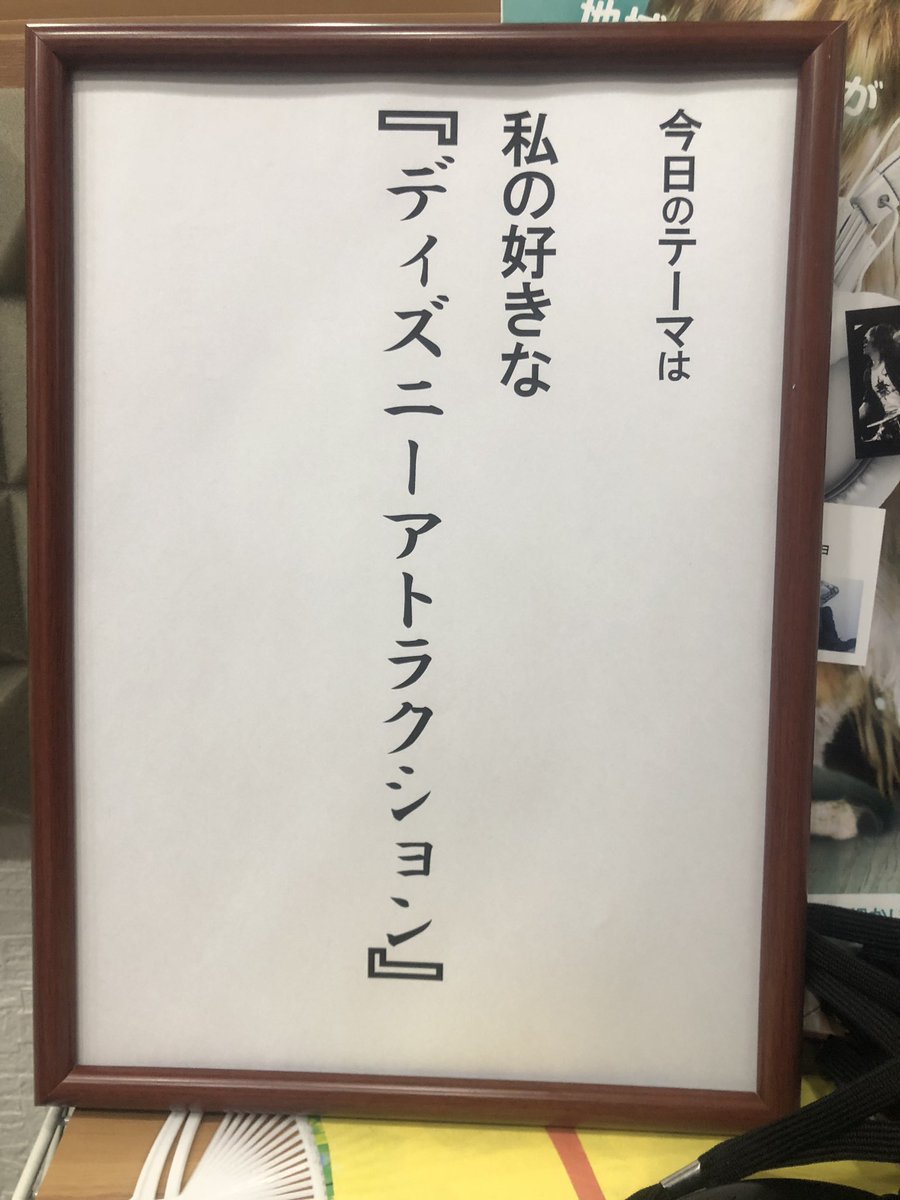 今日のテーマは
私の好きな
『ディズニーアトラクション』
が